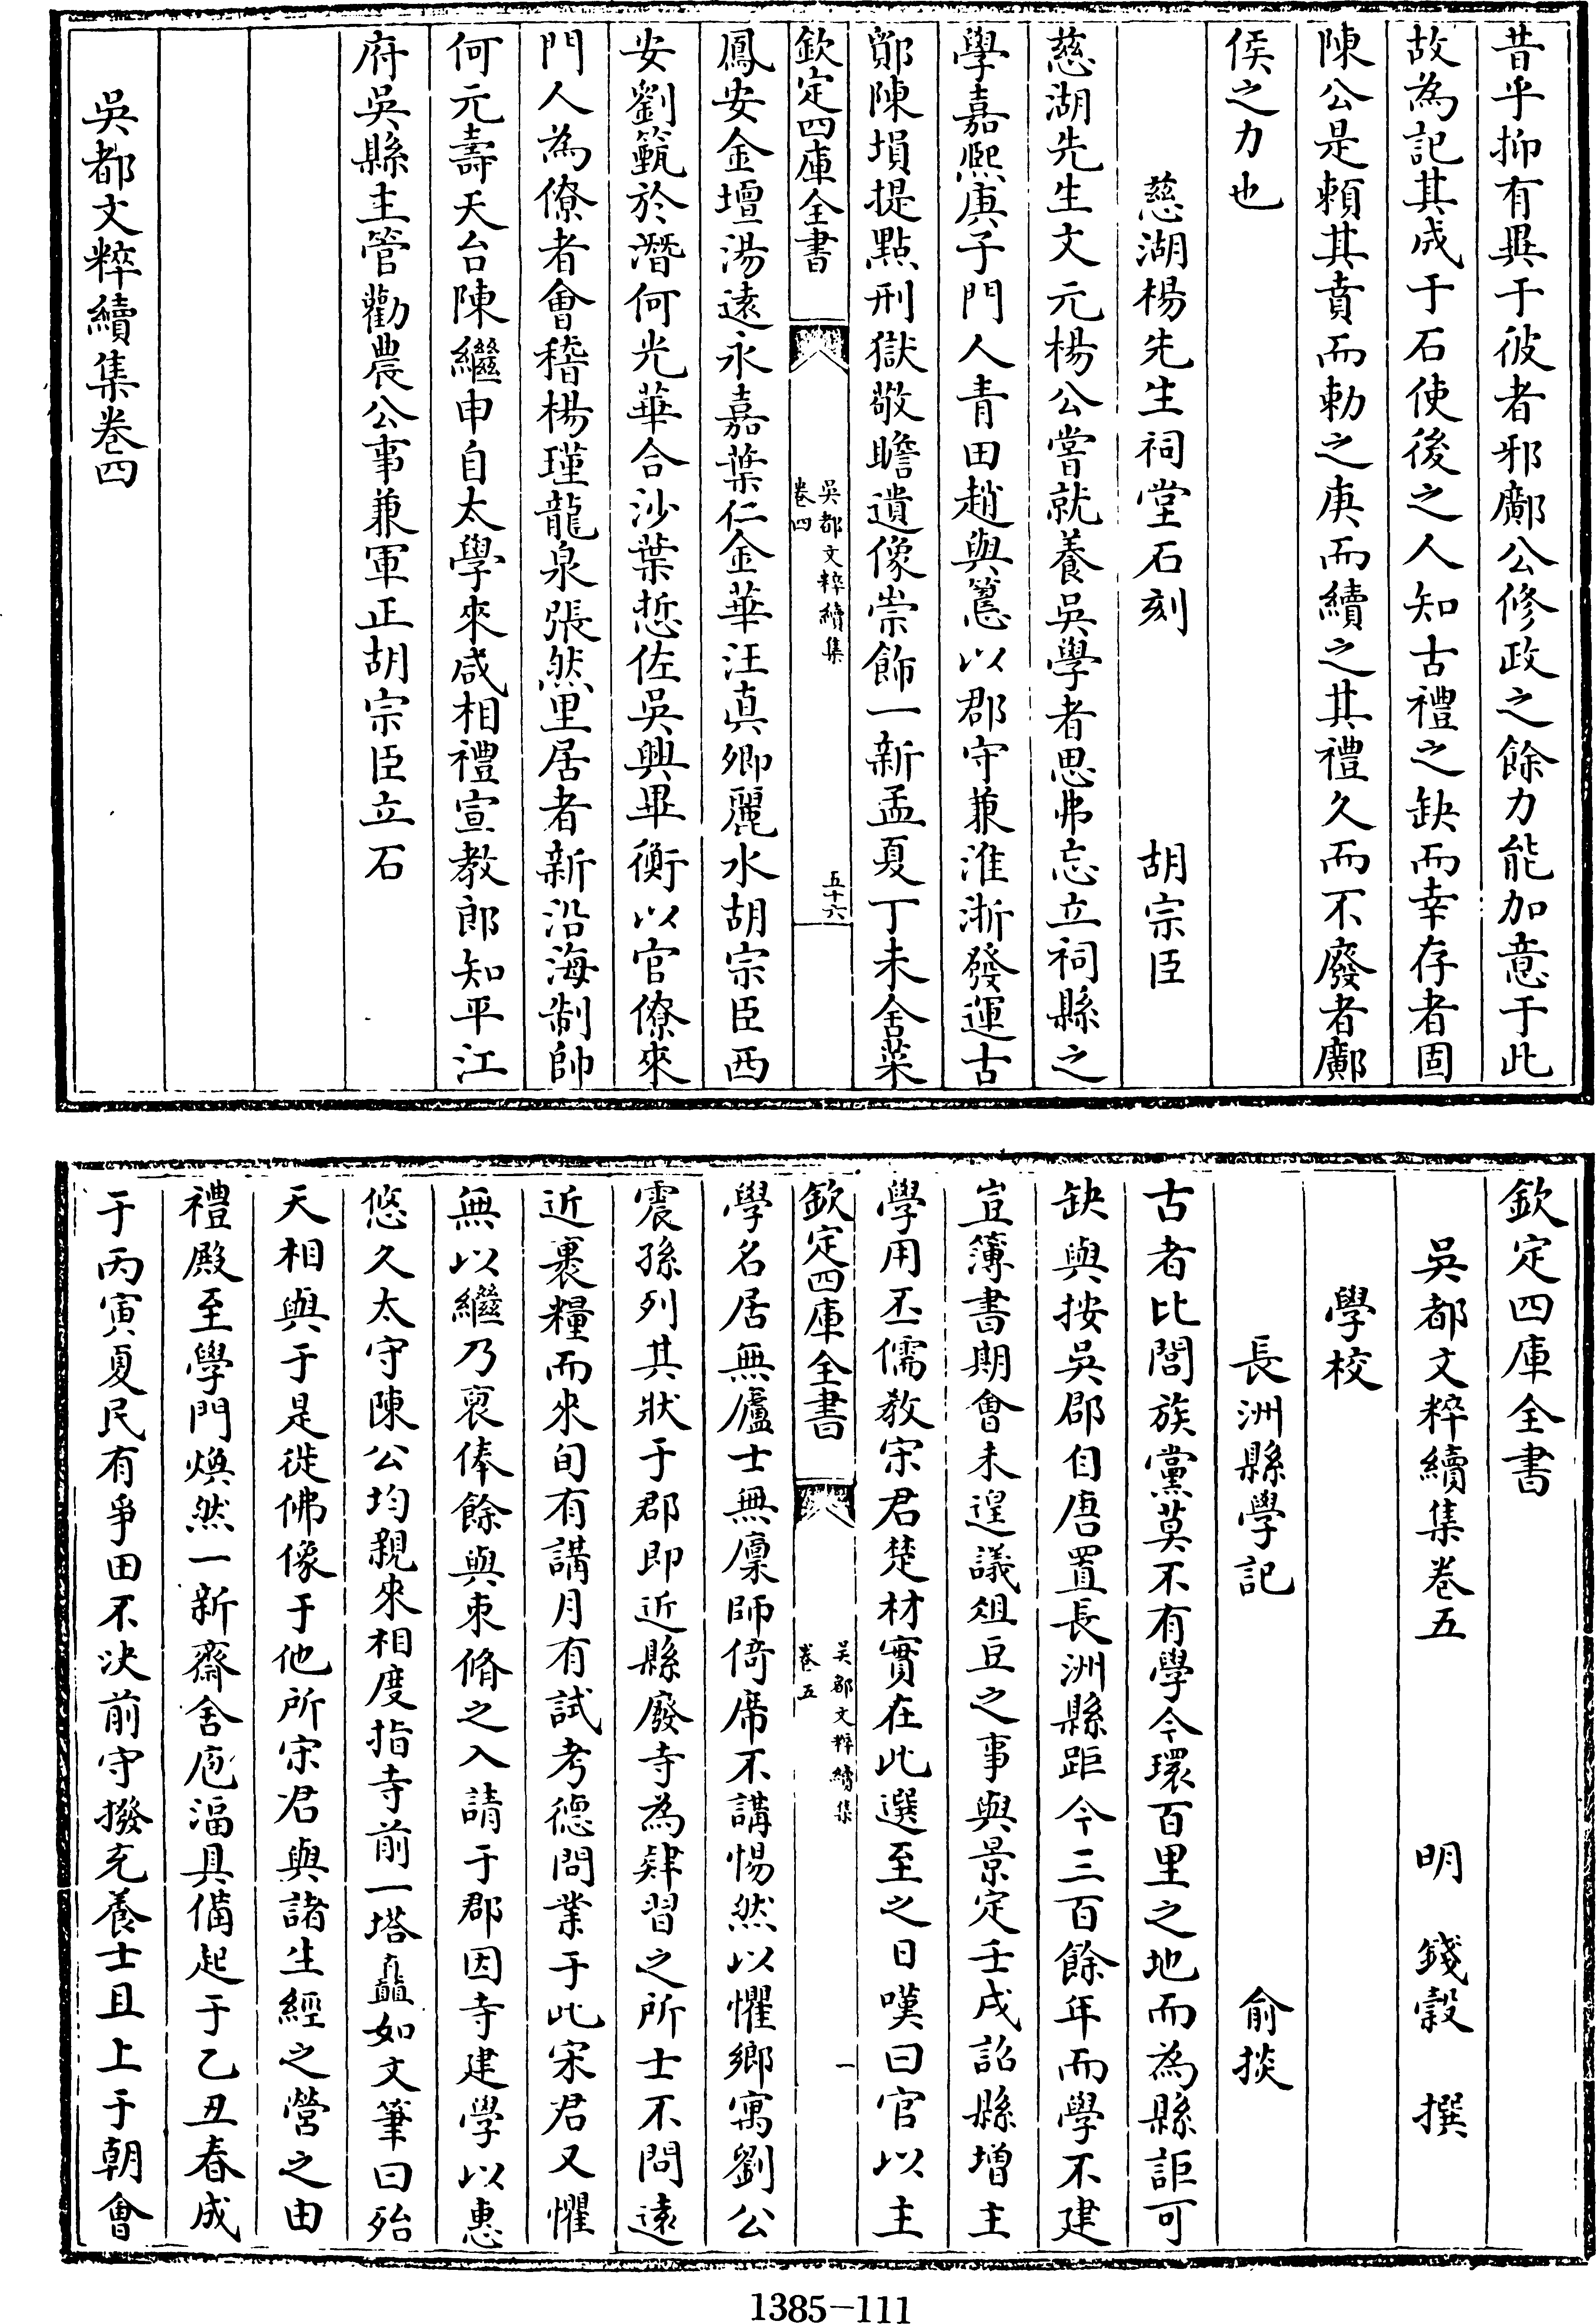 昔乎抑有異于彼者邪鄺公修政之餘力能加意于此
故為記其成于石使後之人知古禮之缺而幸存者固
陳公是頼其賁而勅之庚而續之其禮久而不廢者鄺
侯之力也
慈湖楊先生祠堂石刻 胡宗臣
慈湖先生文元楊公嘗就養吳學者思弗忘立祠縣之
學嘉熙庚子門人青田趙與𥲅以郡守兼淮浙發運古
鄞陳塤提點刑獄敬瞻遺像崇飾一新孟夏丁未舍菜
欽定四庫全書 吳都文粹續集 卷四 五十六
鳳安金壇湯遠永嘉葉仁金華汪真卿麗水胡宗臣西
安劉甎於潛何光華合沙葉悊佐吳興畢衡以官僚來
門人為僚者會稽楊瑾龍泉張然里居者新沿海制帥
何元壽天台陳繼申自太學來咸相禮宣教郎知平江
府吳縣主管勸農公事兼軍正胡宗臣立石
吳都文粹續集卷四
欽定四庫全書
吳都文粹續集卷五 明 錢穀 撰
學校
長洲縣學記 俞掞
古者比閭族黨莫不有學今環百里之地而為縣詎可
缺與按吳郡自唐置長洲縣距今三百餘年而學不建
豈簿書期會未遑議俎豆之事與景定壬戌詔縣增主
學用丕儒教宋君楚材實在此選至之日嘆曰官以主
欽定四庫全書 吳都文粹續集 卷五 一
學名居無廬士無廩師倚席不講惕然以懼鄉寓劉公
震孫列其狀于郡即近縣廢寺為肄習之所士不問遠
近裹糧而來旬有講月有試考德問業于此宋君又懼
無以繼乃裒俸餘與束脩之入請于郡因寺建學以惠
悠久太守陳公均親來相度指寺前一塔矗如文筆曰殆
天相與于是徙佛像于他所宋君與諸生經之營之由
禮殿至學門煥然一新齋舍庖湢具備起于乙丑春成
于丙寅夏民有爭田不決前守撥充養士且上于朝會
1385-111